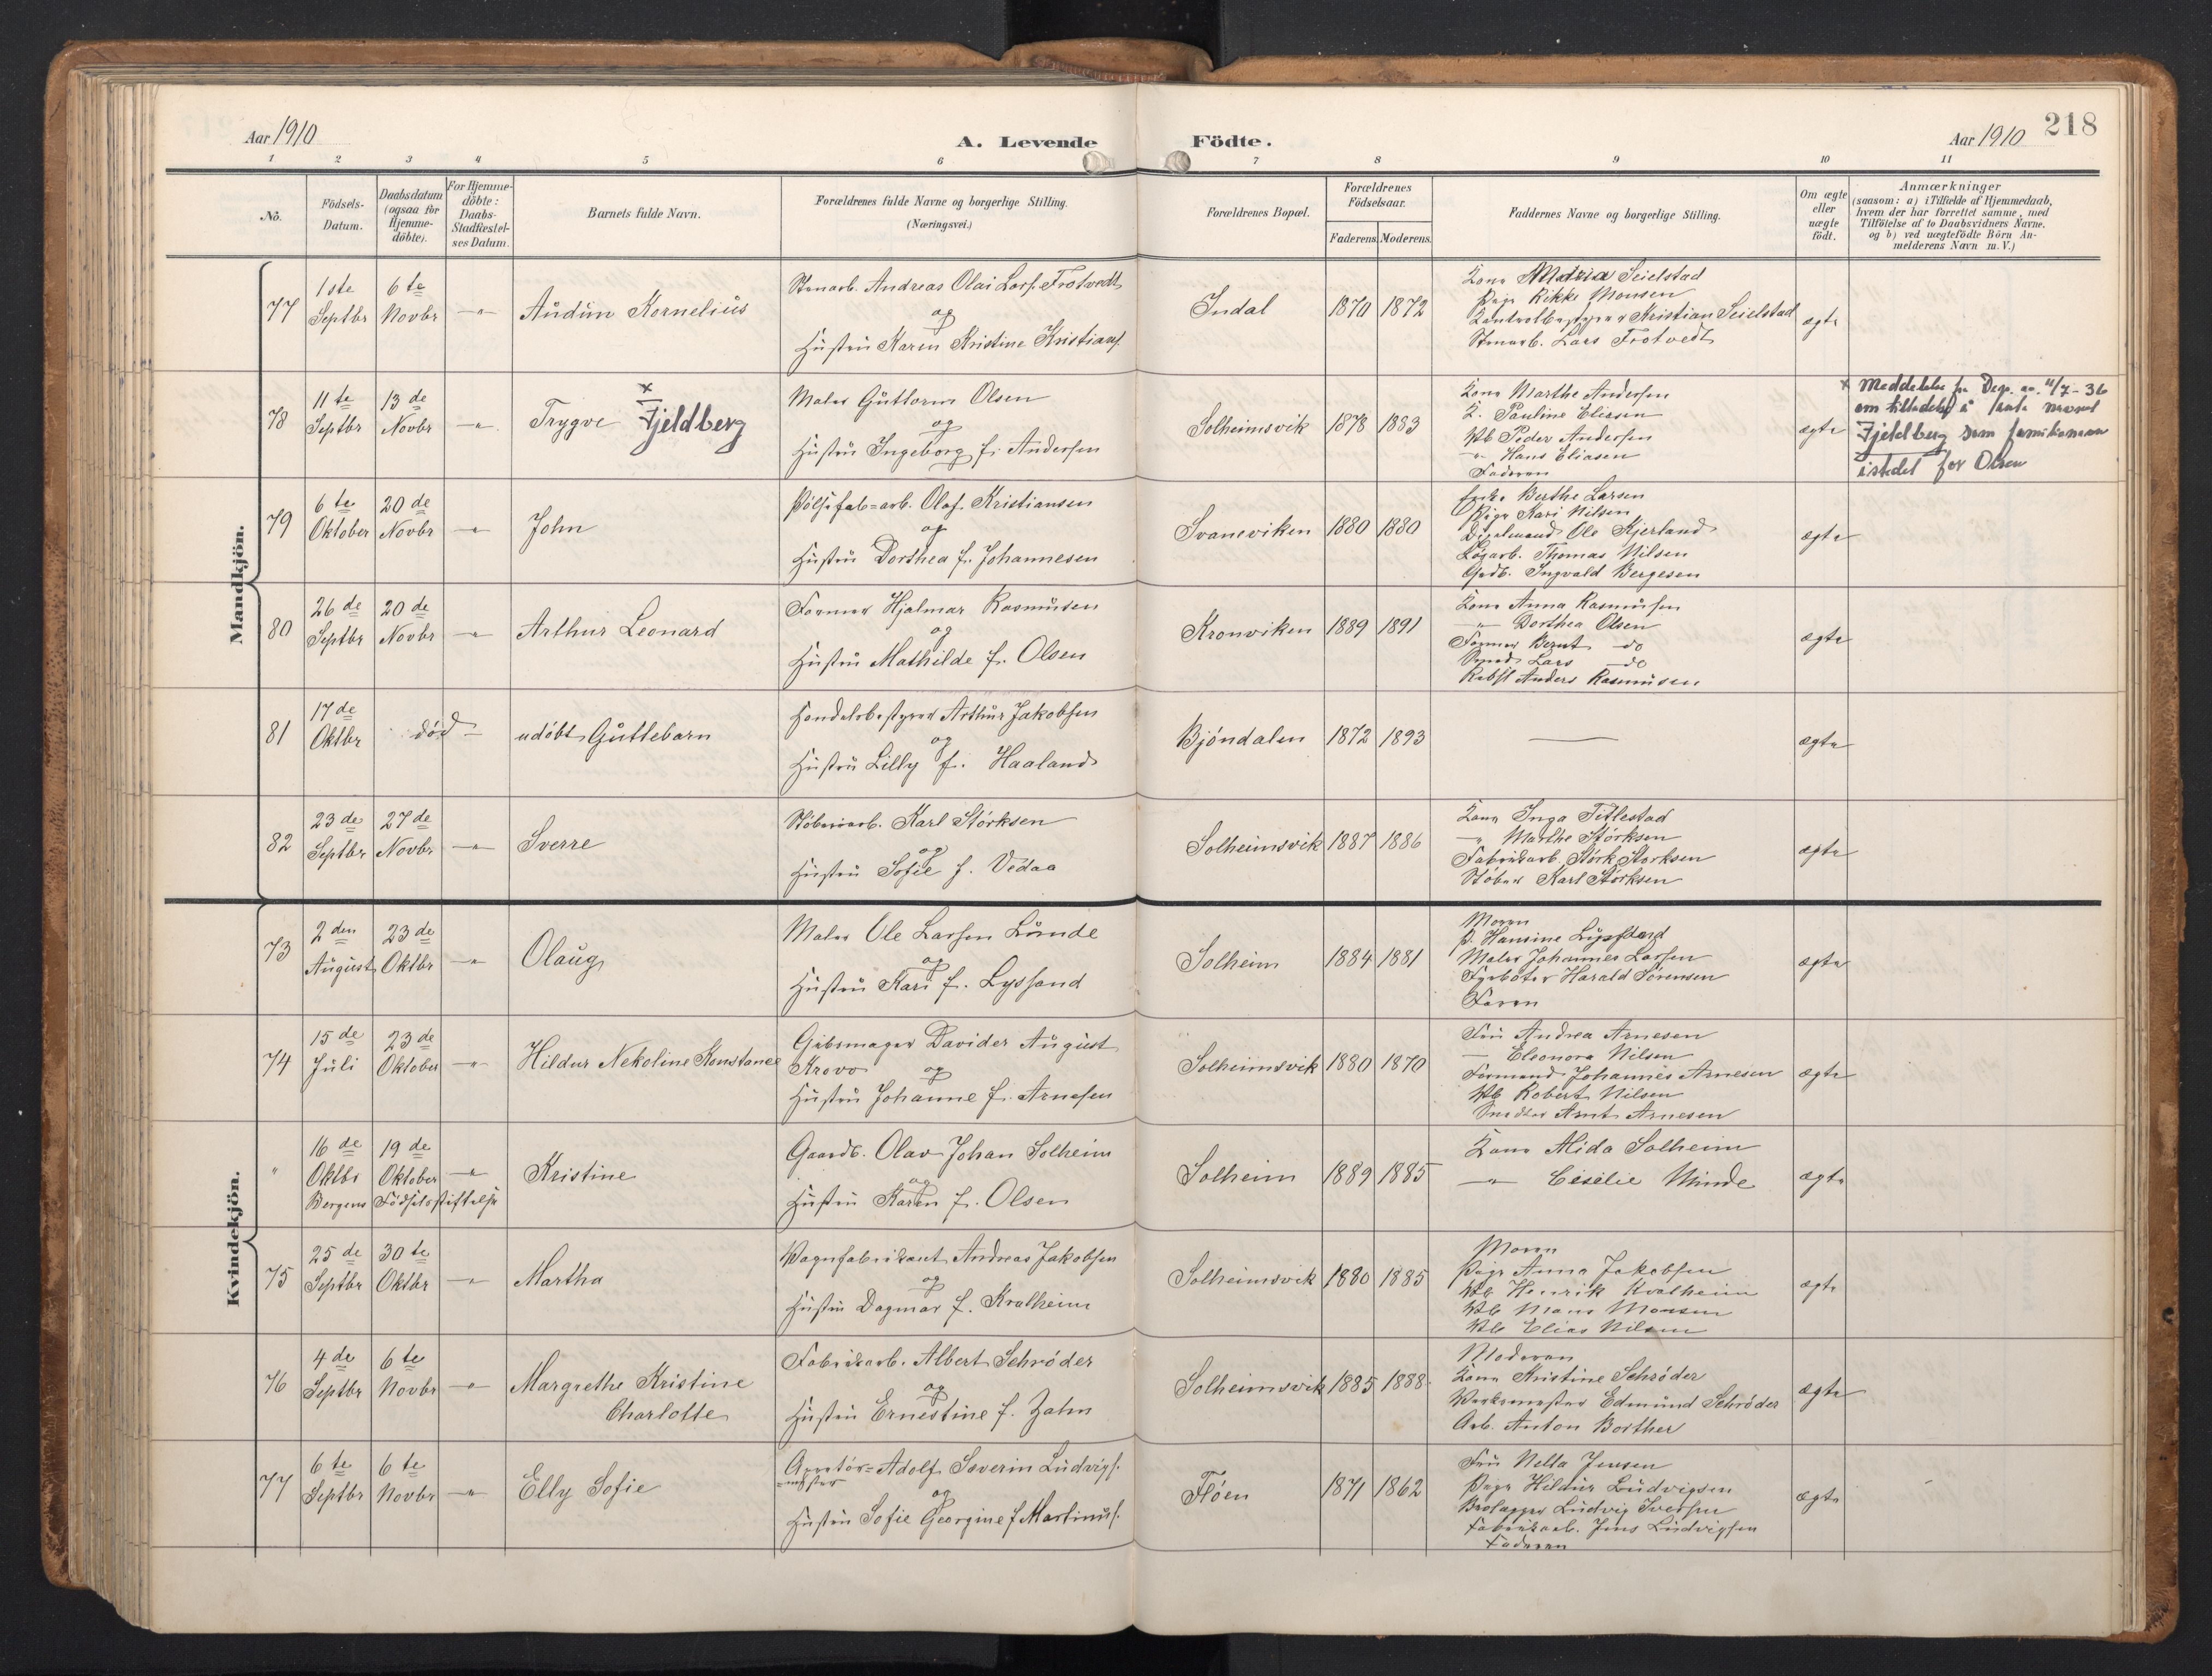 Aar 1910
A. Levende Födte.
Aar 1910
218
1 2 3 4 5 6 7 8 9 10 11
No.
Födsels-Datum.
Daabsdatum (ogsaa for Hjemme-döbte).
For Hjemme-döbte: Daabs-Stadfestel-ses Datum.
Barnets fulde Navn.
Forældrenes fulde Navne og borgerlige Stilling.
(Næringsvei.)
Forældrenes Bopæl.
Forældrenes Födselsaar.
Faderens. Moderens.
Faddernes Navne og borgerlige Stilling.
Om ægte eller uægte født.
Anmærkninger
(saasom: a) i Tilfælde af Hjemmedaab,
hvem der har forrettet samme, med
Tilföielse af to Daabsvidners Navne,
og b) ved uægtefödte Börn An-
melderens Navn m. V.)
Mandkjön.
77
1ste Septbr
6te Novbr
Audun Kornelius
Stenarb. Andreas Olai Lars. Frotvedt
og
Hustru Karen Kristine Kristians.
Indal
1870 1872
Kona Maria Seielstad
Pige Rikke Monsen
Kristian Seielstad
Stenarb. Lars Frotvedt
ægte
78
11te Septbr
13de Novbr
Trygve x Fjeldberg
Maler Guttorm Olsen
og
Hustru Ingeborg f. Andersen
Solheimsvik
1878 1883
Kona Marthe Andersen
K. Pauline Eliasen
Peder Andersen
" Hans Eliasen
Faderen
ægte
x Meddelelse fra Dep. av 4/7-36
om tilladelse å navnet
Fjeldberg som familienavn
istedet for Olsen
79
6te Oktober
20de Novbr
John
Pölsefab-arb. Olaf Kristiansen
og
Hustru Dorthea f. Johannesen
Svaneviken
1880 1880
Enke Berthe Larsen
Pige Kari Nilsen
Ole Kjerland
Thomas Nilsen
Gadb. Ingvald Bergesen
ægte
80
26de Septbr
20de Novbr
Arthur Leonard
Former Hjalmar Rasmussen
og
Hustru Mathilde f. Olsen
Kronviken
1889 1891
Kona Anna Rasmussen
" Dorthea Olsen
Former Bernt do
Lars do
Anders Rasmussen
ægte
81
17de Oktbr
död
udöbt Guttebarn
Handelsbestyrer Arthur Jakobsen
og
Hustru Lilly f. Haaland
Bjöndalen
1872 1893
ægte
82
23de Septbr
27de Novbr
Sverre
Støberiarb. Karl Størksen
og
Hustru Sofie f. Vedaa
Solheimsvik
1887 1886
Kona Inga Titlestad
" Marthe Størksen
Fabrikarb. Størk Størksen
Støber Karl Størksen
ægte
Kvindekjön.
73
2den August
23de Oktbr
Olaug
Maler Ole Larsen Lunde
og
Hustru Kari f. Lyssand
Solheim
1884 1881
Moren
P. Hansine Lyssand
Maler Johannes Larsen
Fyrböter Harald Sörensen
Faren
ægte
74
15de Juli
23de Oktober
Hildur Nekoline Konstance
Gibsmager Davider August
Krovo og
Hustru Johanne f. Arnesen
Solheimsvik
1880 1870
Fru Andrea Arnesen
— Eleonora Nilsen
Formand Johannes Arnesen
Robert Nilsen
Arnt Arnesen
ægte
"
16de Oktbr
19de Oktober
Bergens Födselsstiftelse
Kristine
Gaardb. Olav Johan Solheim
og
Hustru Karen f. Olsen
Solheim
1889 1885
Kona Alida Solheim
" Cecilie Minde
ægte
75
25de Septbr
30te Oktbr
Martha
Vognfabrikant Andreas Jakobsen
og
Hustru Dagmar f. Kvalheim
Solheimsvik
1880 1885
Moren
Pige Anna Jakobsen
Henrik Kvalheim
Mons Monsen
Elias Nilsen
ægte
76
4de Septbr
6te Novbr
Margrethe Kristine
Charlotte
Fabrikarb. Albert Schröder
og
Hustru Ernestine f. Zahn
Solheimsvik
1885 1888
Moderen
Kona Kristine Schröder
Verksmester Edmund Schröder
Arb. Anton Borther
ægte
77
6te Septbr
6te Novbr
Elly Sofie
Appretör-mester Adolf Severin Ludvigs.
og
Hustru Sofie Georgine f. Martinus.
Flöen
1871 1862
Fru Nella Jensen
Pige Hildur Ludvigsen
Ludvig Iversen
Fabrikarb. Jens Ludvigsen
Faderen
ægte